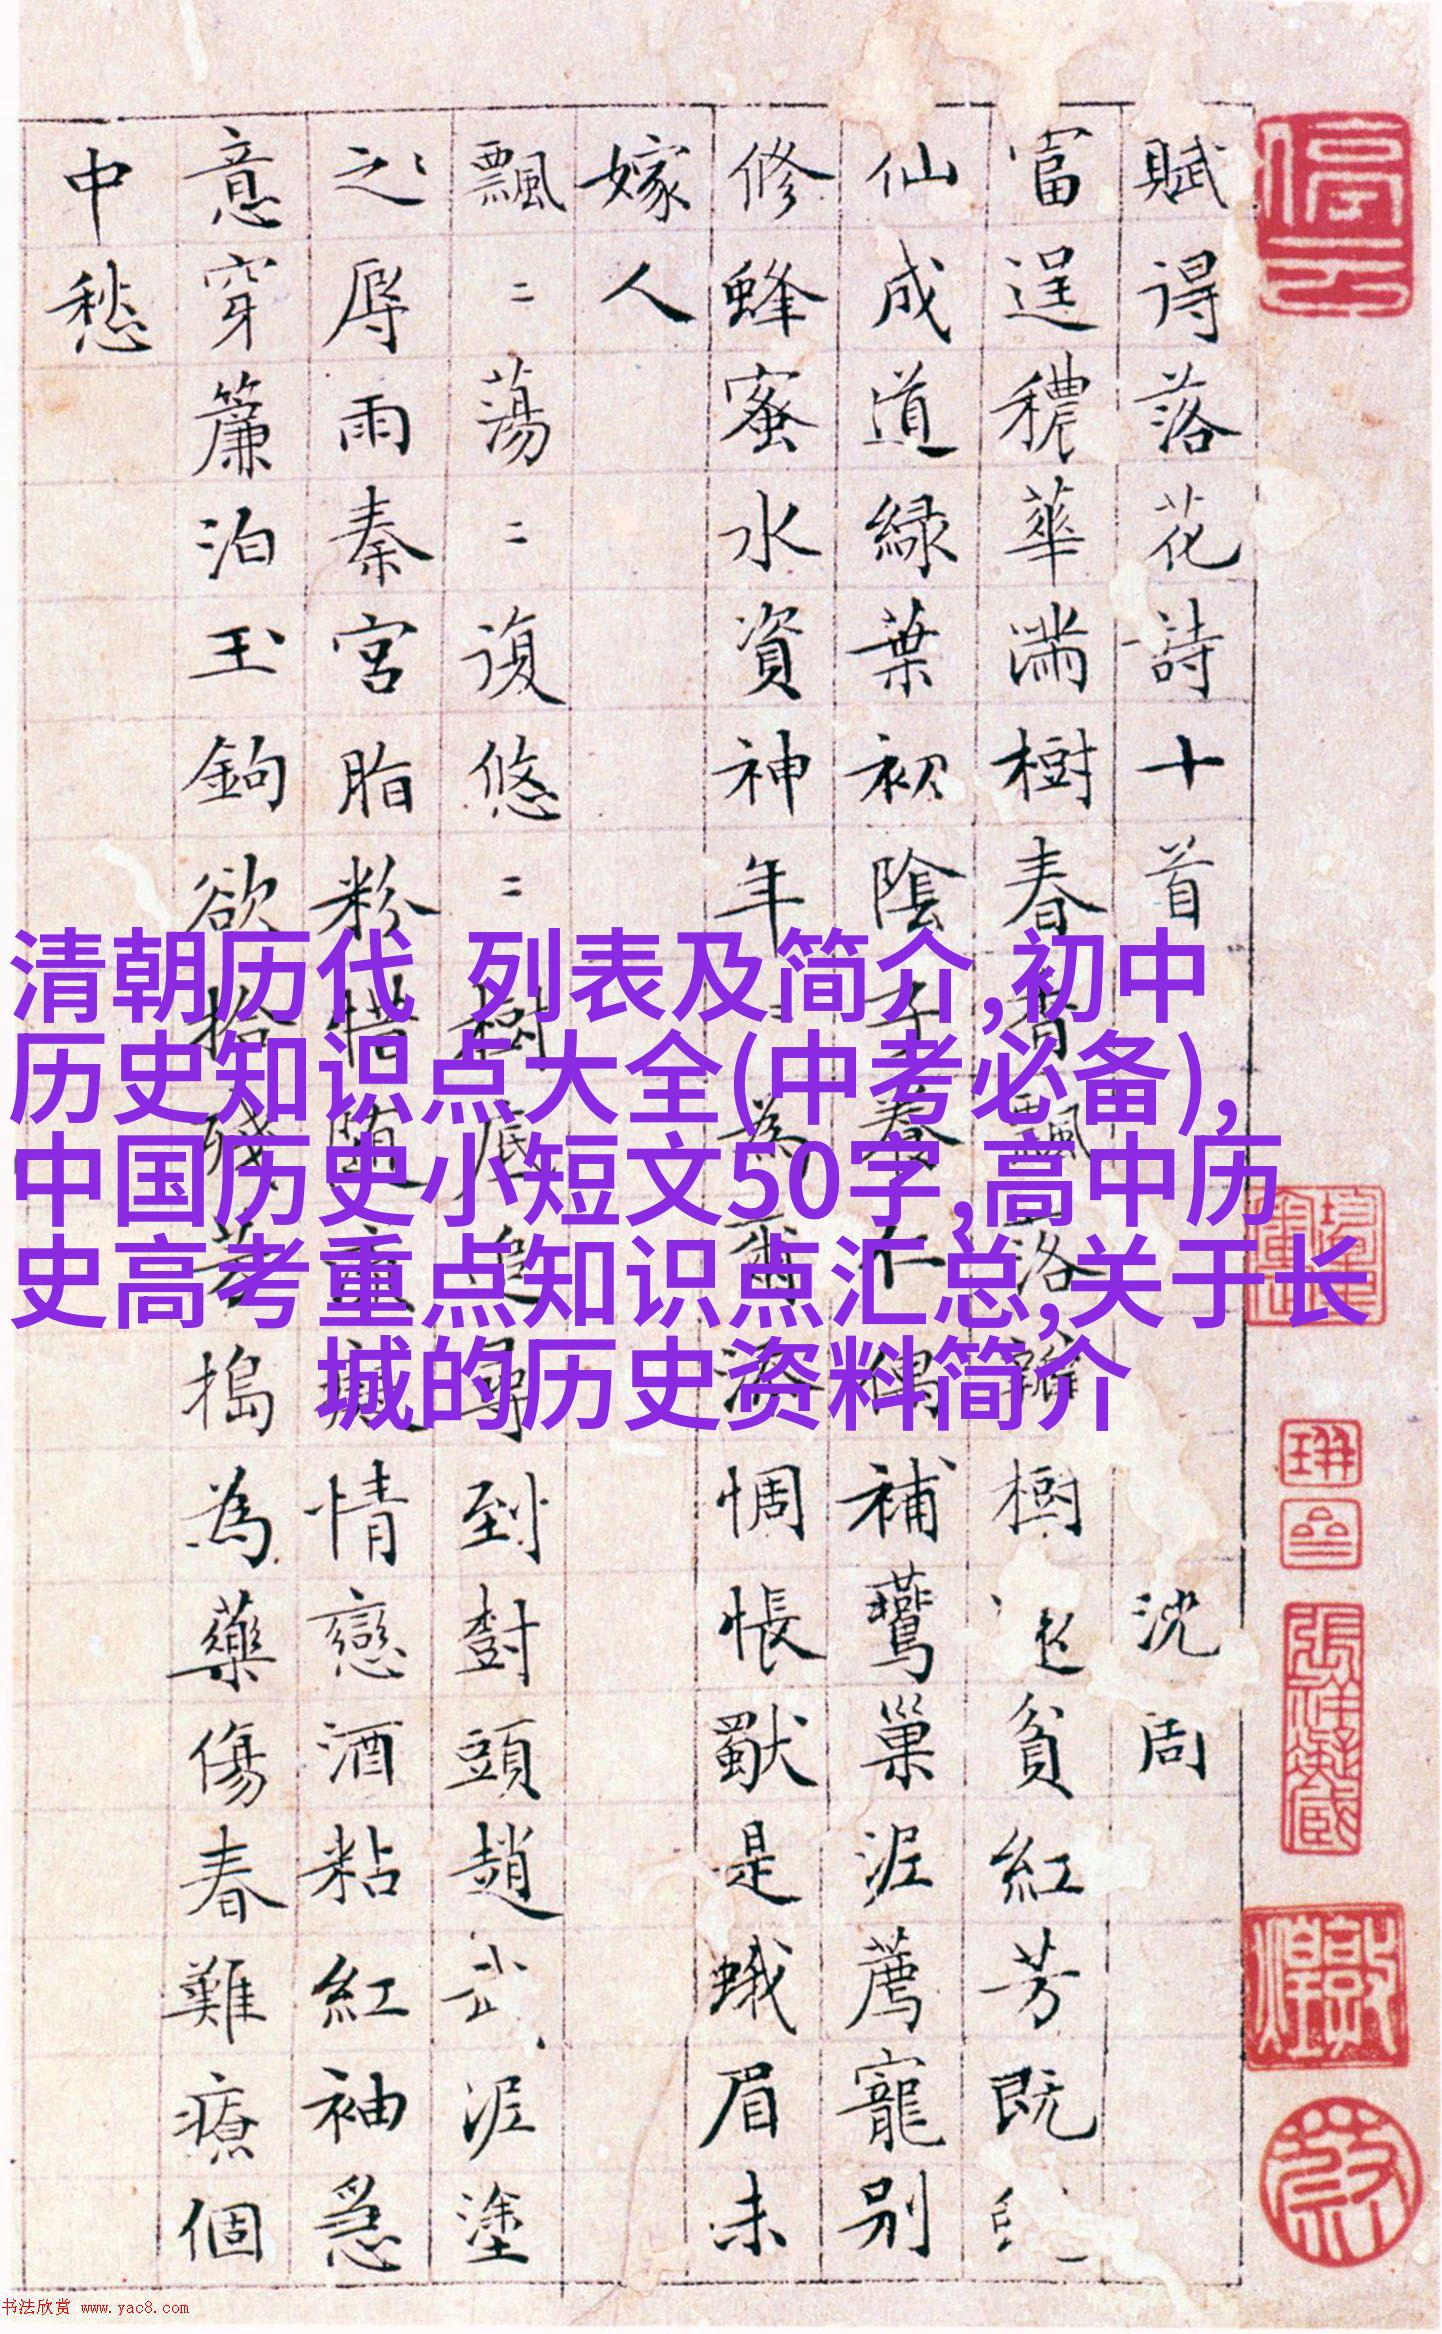 清朝历代 列表及简介,初中
历史知识点大全(中考必备),
中国历史小短文50字,高中历
史高考重点知识点汇总,关于长
城的历史资料简介
賦得落花詩十首 沈周
富逞穠華滿樹春香飄落瓣樹 貧紅芳既
仙成道緑葉初陰子養仁偶補鸎巢泥薦寵别
修蜂蜜水資神年〻為爾添惆悵獨是蛾眉未
嫁人
飄〻蕩〻復悠〻樹底追尋到樹頭趙武泥塗
之辱雨秦宮脂粉惜 癡情戀酒粘紅袖急
意穿簾泊玉鉤欲拾殘芳搗為藥傷春難療個
中愁
书法欣赏 www.yac8.com